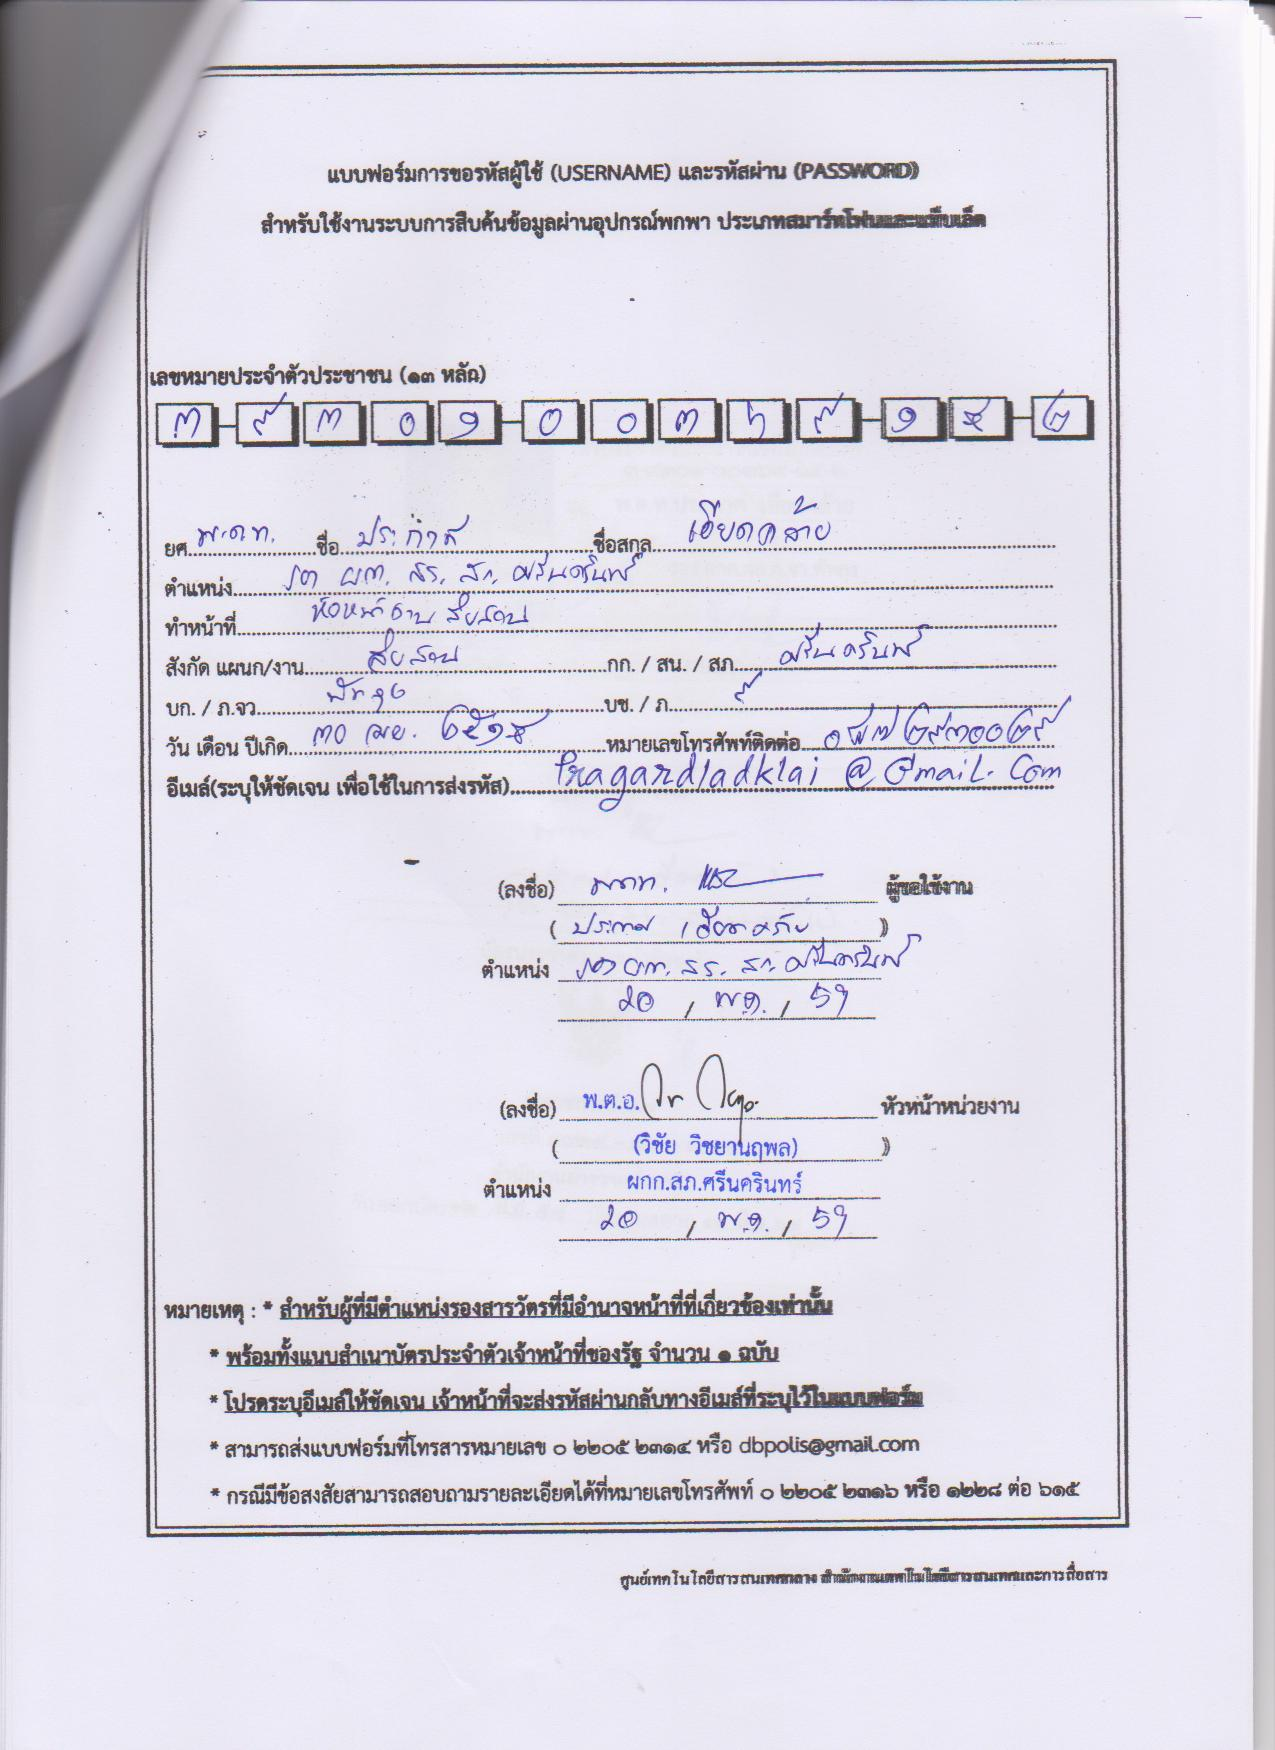 แบบฟอร์มการขอรหัสผู้ใช้ (USERNAME) และรหัสผ่าน (PASSWORD)
สำหรับใช้งานระบบการสืบค้นข้อมูลผ่านอุปกรณ์พกพา ประเภทสมาร์ทโฟนและแท็บเล็ต
เลขหมายประจำตัวประชาชน (๑๓ หลัก)
๓ ๙ ๓ ๐ ๑ ๐ ๐ ๓ ๖ ๙ ๑ ๕ ๒
ยศ พ.ต.ท. ชื่อ ประกาศ ชื่อสกุล เอียดคล้าย
ตำแหน่ง รอง ผกก. สส. สภ. ศรีนครินทร์
ทำหน้าที่ หัวหน้างาน สืบสวน
สังกัด แผนก/งาน สืบสวน กก. / สน. / สภ. ศรีนครินทร์
บก. / ภ.จว. พัทลุง บช. / ภ. ๙
วัน เดือน ปีเกิด ๓๐ เมย. ๒๕๑๕ หมายเลขโทรศัพท์ติดต่อ ๐๘๗๒๙๓๐๐๒๙
อีเมล์(ระบุให้ชัดเจน เพื่อใช้ในการส่งรหัส) Pragardladklai@Gmail.Com
(ลงชื่อ) พ.ต.ท. ผู้ขอใช้งาน
( ประกาศ เอียดคล้าย )
ตำแหน่ง รอง ผกก. สส. สภ. ศรีนครินทร์
20 / พ.ค. / 57
(ลงชื่อ) พ.ต.อ. หัวหน้าหน่วยงาน
( (วิชัย วิชยานฤพล) )
ตำแหน่ง ผกก.สภ.ศรีนครินทร์
20 / พ.ค. / 57
หมายเหตุ : * สำหรับผู้ที่มีตำแหน่งรองสารวัตรที่มีอำนาจหน้าที่ที่เกี่ยวข้องเท่านั้น
* พร้อมทั้งแนบสำเนาบัตรประจำตัวเจ้าหน้าที่ของรัฐ จำนวน ๑ ฉบับ
* โปรดระบุอีเมล์ให้ชัดเจน เจ้าหน้าที่จะส่งรหัสผ่านกลับทางอีเมล์ที่ระบุไว้ในแบบฟอร์ม
* สามารถส่งแบบฟอร์มที่โทรสารหมายเลข ๐ ๒๒๐๕ ๒๓๑๔ หรือ dbpolis@gmail.com
* กรณีมีข้อสงสัยสามารถสอบถามรายละเอียดได้ที่หมายเลขโทรศัพท์ ๐ ๒๒๐๕ ๒๓๑๖ หรือ ๑๒๒๘ ต่อ ๖๑๕
ศูนย์เทคโนโลยีสารสนเทศกลาง สำนักงานเทคโนโลยีสารสนเทศและการสื่อสาร